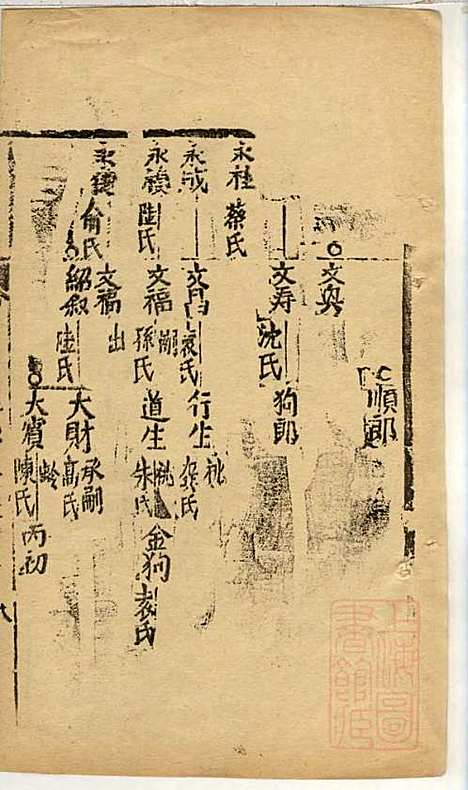 順郎
文奐
文寿 沈氏 狗郎
永社 蔡氏
永成 文昌 袁氏 行生 祧 祭氏
永禄 陸氏 文福 嗣 孫氏 道生 桃 朱氏 金狗 袁氏
永德 俞氏 文福 出
紹叙 陸氏 大財 承嗣 高氏
大賓 齡 陳氏 丙初
八